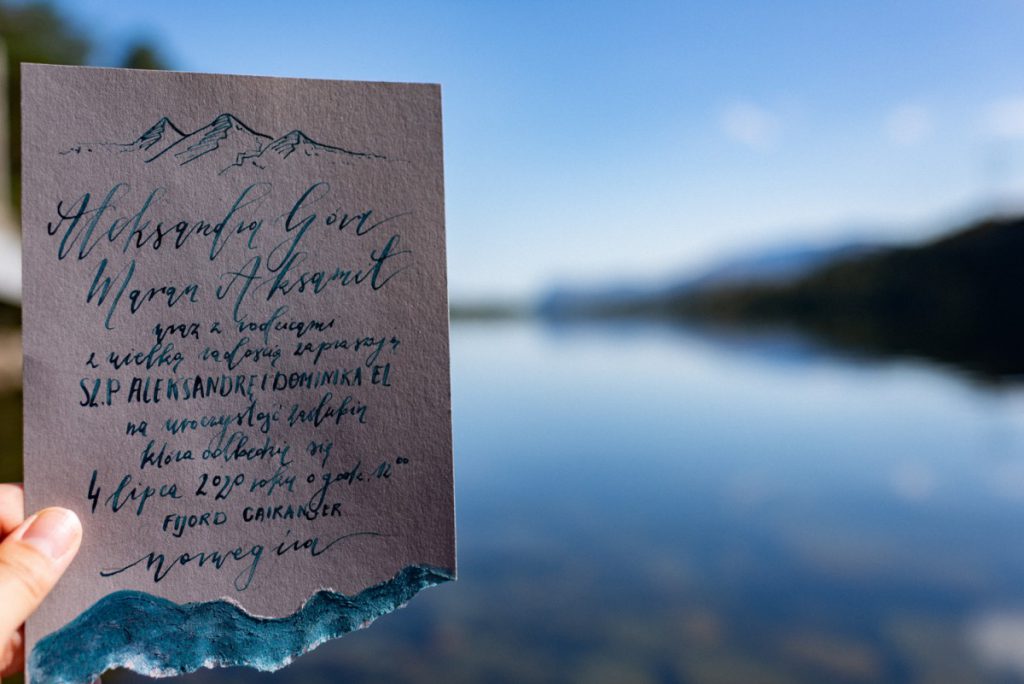 Aleksandra Góra
Marcin Aksamit
wraz z rodzicami
z wielką radością zapraszają
SZ.P ALEKSANDRĘ I DOMINIKA EL
na uroczystość zaślubin
która odbędzie się
4 lipca 2020 roku o godz. 12⁰⁰
FIJORD GAIRANGER
Norwegia